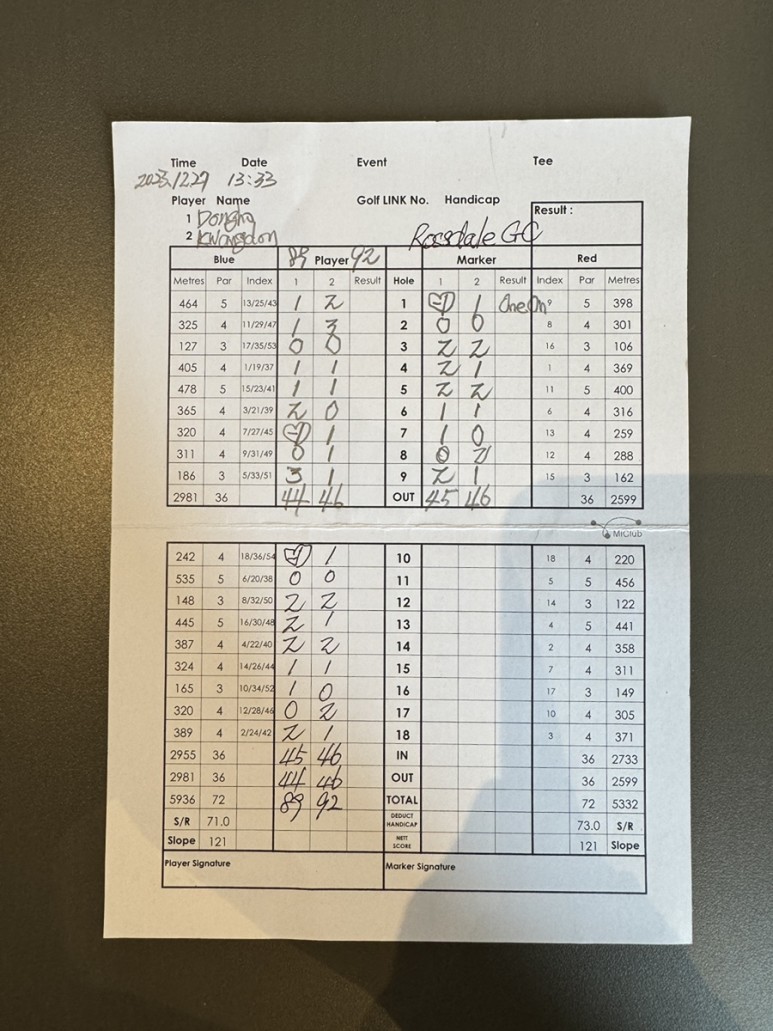 Time Date Event Tee
2023.12.29 13:33
Player Name Golf LINK No. Handicap
Result :
1 Dongho
2 Kwangdon Rossdale GC
Blue 89 Player 92 Marker Red
Metres Par Index 1 2 Result Hole 1 2 Result Index Par Metres
464 5 13/25/43 1 2 1 -1 1 One On 9 5 398
325 4 11/29/47 1 3 2 0 0 8 4 301
127 3 17/35/53 0 0 3 2 2 16 3 106
405 4 1/19/37 1 1 4 2 1 1 4 369
478 5 15/23/41 1 1 5 2 2 11 5 400
365 4 3/21/39 2 0 6 1 1 6 4 316
320 4 7/27/45 -1 1 7 1 0 13 4 259
311 4 9/31/49 0 1 8 0 2 12 4 288
186 3 5/33/51 3 1 9 2 1 15 3 162
2981 36 44 46 OUT 45 46 36 2599
MiClub
242 4 18/36/54 -1 1 10 18 4 220
535 5 6/20/38 0 0 11 5 5 456
148 3 8/32/50 2 2 12 14 3 122
445 5 16/30/48 2 1 13 4 5 441
387 4 4/22/40 2 2 14 2 4 358
324 4 14/26/44 1 1 15 7 4 311
165 3 10/34/52 1 0 16 17 3 149
320 4 12/28/46 0 2 17 10 4 305
389 4 2/24/42 2 1 18 3 4 371
2955 36 45 46 IN 36 2733
2981 36 44 46 OUT 36 2599
5936 72 89 92 TOTAL 72 5332
S/R 71.0 DEDUCT HANDICAP 73.0 S/R
Slope 121 NETT SCORE 121 Slope
Player Signature Marker Signature